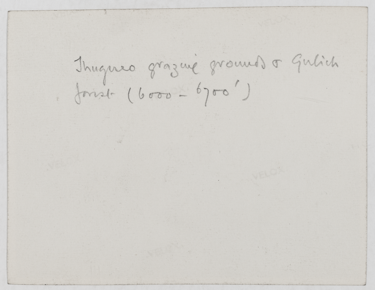 Thugueo grazing grounds & Gulich
forest (6000 - 6700')